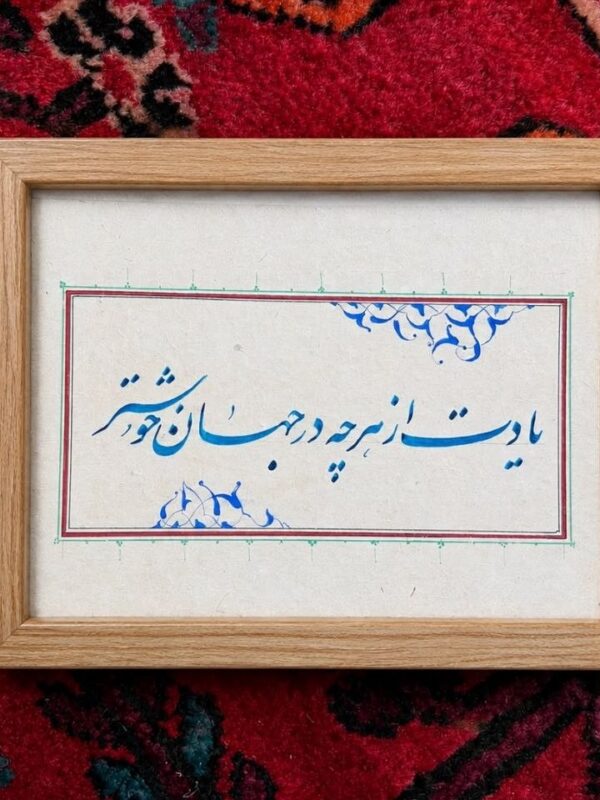 یادت از هر چه در جهان خوشتر